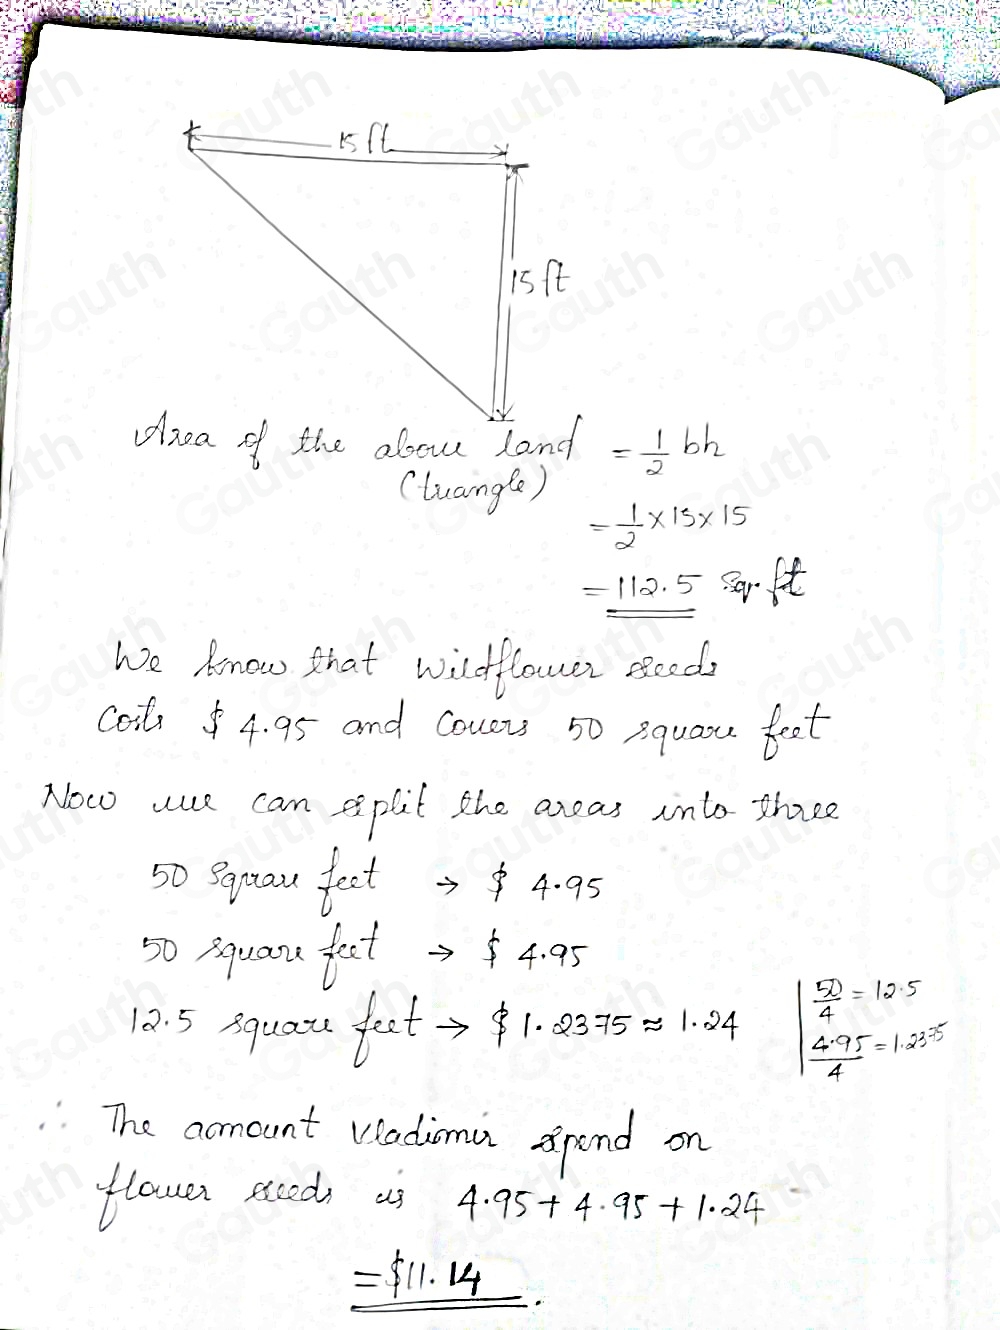 15 ft
15 ft
Area of the above land = 1/2 bh
(triangle)
= 1/2 × 15 × 15
= 112.5 sq. ft
We know that wildflower seeds
costs $ 4.95 and covers 50 square feet
Now we can split the areas into three
50 square feet → $ 4.95
50 square feet → $ 4.95
12.5 square feet → $ 1.2375 ≈ 1.24
50/4 = 12.5
4.95/4 = 1.2375
∴ The amount Vladimir spend on
flower seeds is 4.95 + 4.95 + 1.24
= $11.14.
Gauth